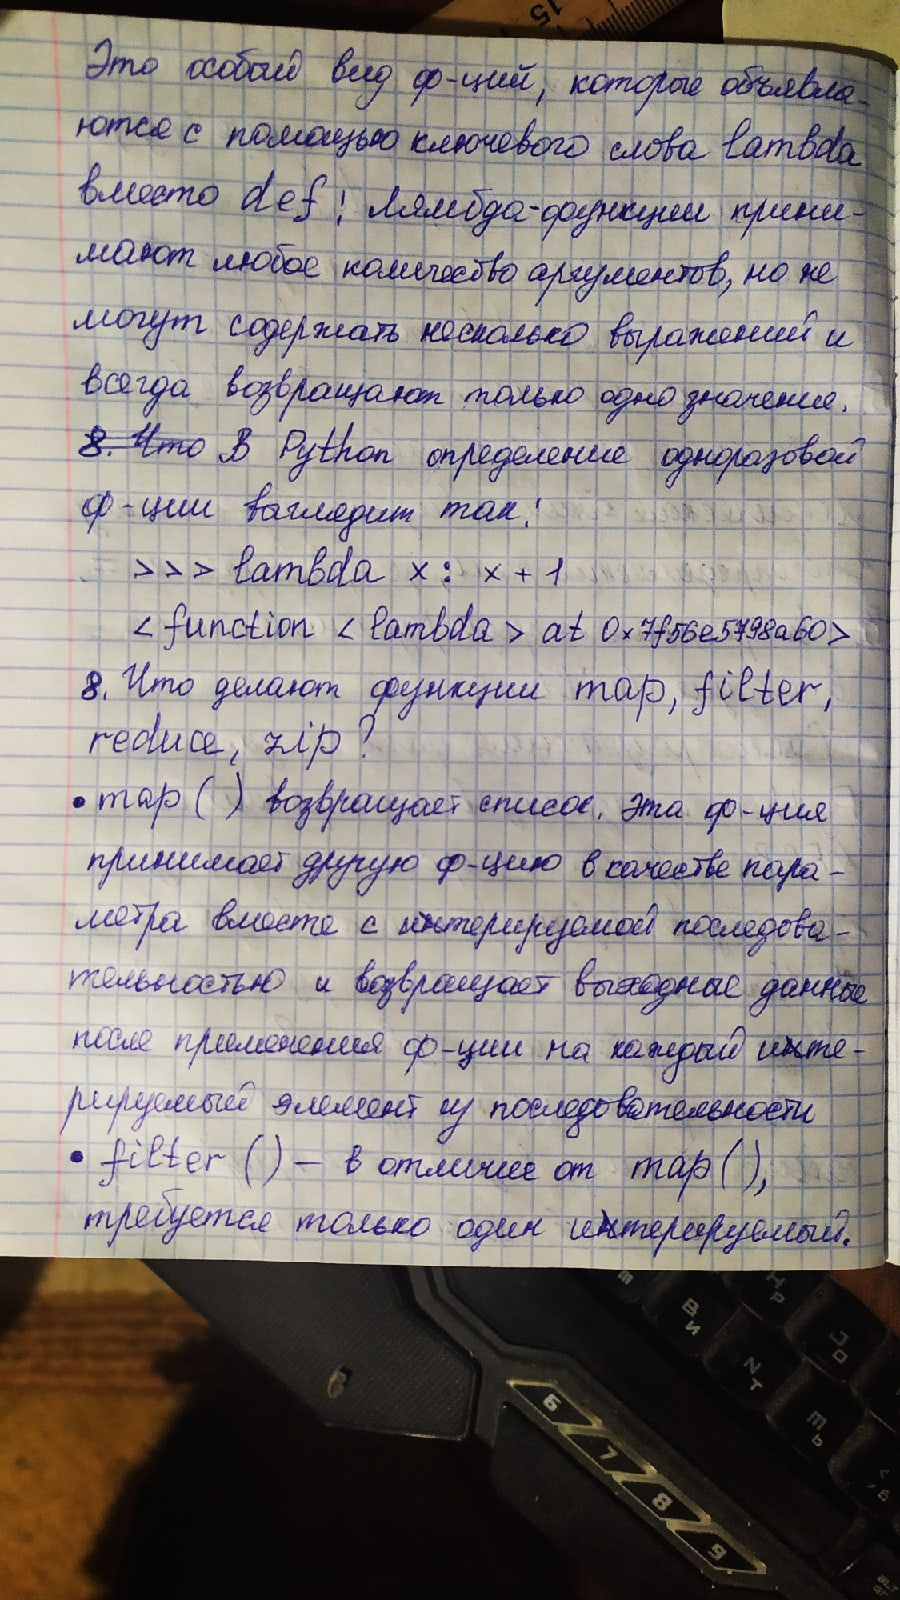 15
Это особый вид ф-ций, которые объявля-
ются с помощью ключевого слова lambda
вместо def! Лямбда-функции прини-
мают любое количество аргументов, но не
могут содержать несколько выражений и
всегда возвращают только одно значение.
8. Что В Python определение одноразовой
ф-ции выглядит так:
>>> lambda x: x + 1
<function <lambda> at 0x7f56e5798a60>
8. Что делают функции map, filter,
reduce, zip?
• map() возвращает список. Эта ф-ция
принимает другую ф-цию в качестве пара-
метра вместе с интерируемой последова-
тельностью и возвращает выходные данные
после применения ф-ции на каждый инте-
рируемый элемент из последовательности
• filter() - в отличие от map(),
требуется только один интерируемый.
B И
N Т
M Ь
H Р
J О
6
7
8
9